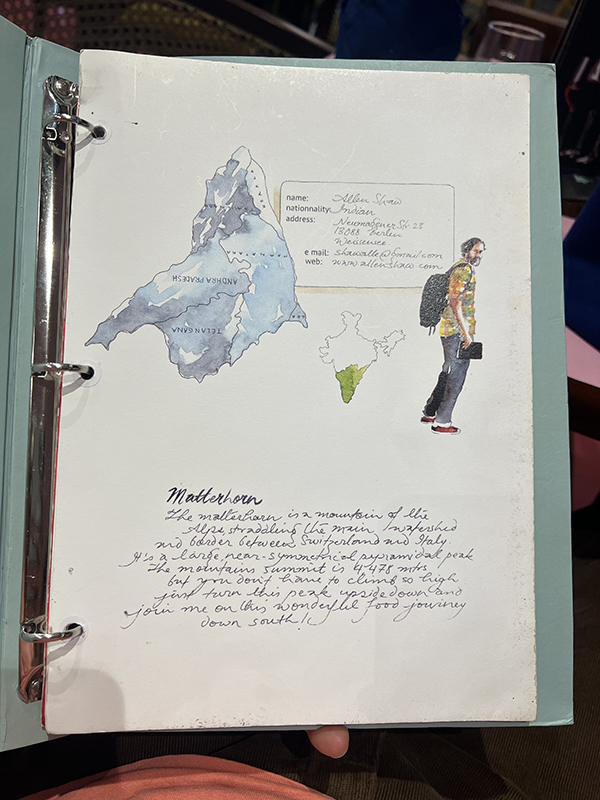 name: Allen Shaw
nationnality: Indian
address: Neumagener Str. 28
13088 Berlin
Weissensee
e mail: shawalle@gmail.com
web: www.allenshaw.com
ANDHRA PRADESH
TELANGANA
Matterhorn
The matterhorn is a mountain of the
Alps, straddling the main watershed
and border between Switzerland and Italy.
It's a large, near-symmetrical pyramidal peak
The mountains summit is 4,478 mtrs
but you don't have to climb so high
just turn this peak upside down and
join me on this wonderful food journey
down south!